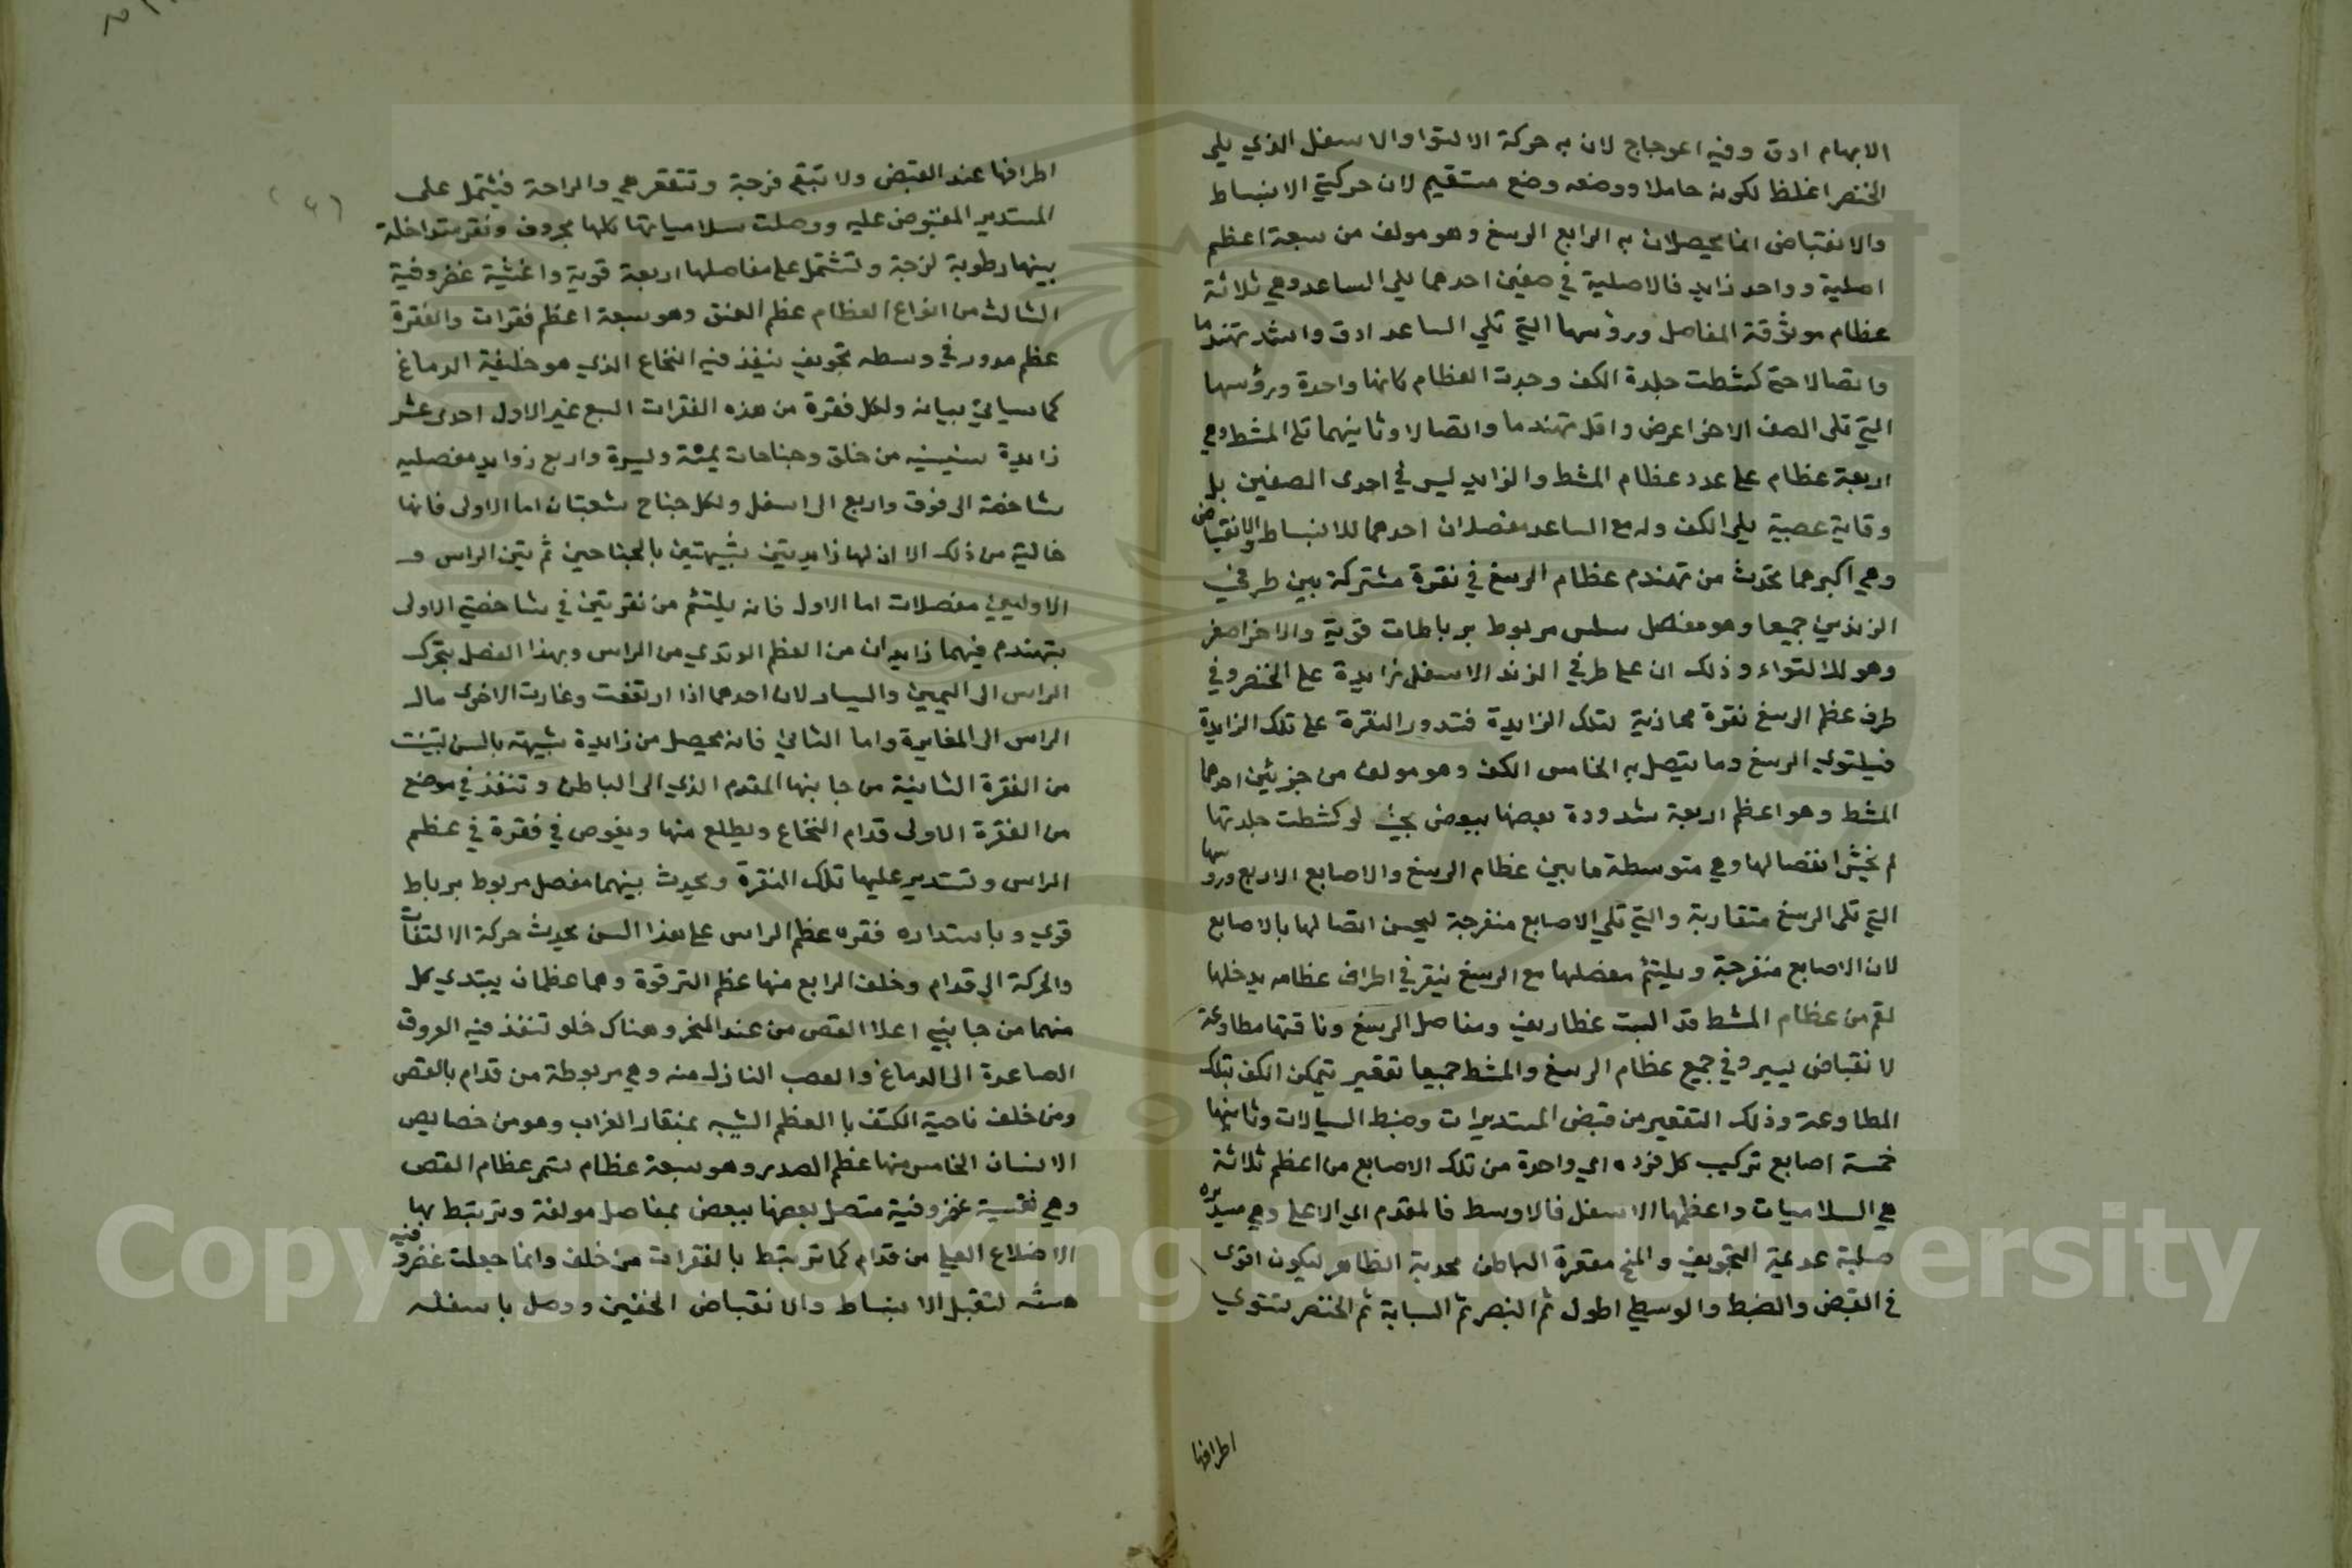 الابهام ادق وفيه اعوجاج لان به حركة الالتوا والاسفل الذي يلي
الخنصر اغلظ لكونه حاملا ووضعه وضع مستقيم لان حركتي الانبساط
والانقباض انما يحصلان به الرابع الرسغ وهو مولف من سبعة اعظم
اصلية وواحد زايد فالاصلية في صفين احدهما يلي الساعد وهي ثلاثة
عظام موثوقة المفاصل ورؤسها التي تلي الساعد ادق واشد تهندما
واتصالا حتى كشطت جلدة الكف وجدت العظام كانها واحدة ورؤسها
التي تلى الصف الاخر اعرض واقل تهندما واتصالا وثانيهما تلى المشط وهي
اربعة عظام على عدد عظام المشط والزايد ليس في احدى الصفين بل
وقاية عصبة يلي الكف وله مع الساعد مفصلان احدهما للانبساط والانقباض
وهي اكبرهما تحدث من تهندم عظام الرسغ في نقرة مشتركة بين طرفي
الزندين جميعا وهو مفصل سلس مربوط برباطات قوية والاخر اصغر
وهو للالتواء وذلك ان على طرفي الزند الاسفل زايدة على الخنصر وفي
طرف عظم الرسغ نقرة محاذية لتلك الزايدة فتدور النقرة على تلك الزايدة
فيلتوي الرسغ وما يتصل به الخامس الكف وهو مولف من جزئين احدهما
المشط وهو اعظم اربعة شدودة بعضها ببعض بحيث لو كشطت جلدتها
لم نخش انفصالها وهي متوسطة ما بين عظام الرسغ والاصابع الاربع ورؤسها
التي تلى الرسغ متقاربة والتي تلي الاصابع منفرجة ليحسن اتصالها بالاصابع
لان الاصابع منفرجة ويلتئم مفصلها مع الرسغ بنقر في اطراف عظامه يدخلها
لقم من عظام المشط قد البست غطاريف ومفاصل الرسغ وناقتها مطاوعة
لانقباض يسير وفي جميع عظام الرسغ والمشط جميعا تقعير يتمكن الكف بتلك
المطاوعة وذلك التقعير من قبض المستديرات وضبط السيالات وثانيهما
خمسة اصابع تركيب كل فرده اي واحدة من تلك الاصابع من اعظم ثلاثة
هي السلاميات واعظمها الاسفل فالاوسط فالمقدم اي الاعلى وهي مستديره
صلبة عديمة التجويف والمخ مقعرة الباطن محدبة الظاهر ليكون اقوى
في القبض والضبط والوسطى اطول ثم البنصر ثم السبابة ثم الخنصر لتستوي
اطرافها
اطرافها عند القبض ولا تبقى فرجة وتتقعر هي والراحة فيشتمل على
المستدير المقبوض عليه ووصلت سلامياتها كلها بحروف ونقر متداخلة
بينها رطوبة لزجة وتشتمل على مفاصلها اربعة قوية واغشية غضروفية
الثالث من انواع العظام عظم العنق وهو سبعة اعظم فقرات والفقرة
عظم مدور في وسطه تجويف ينفذ فيه النخاع الذي هو خليفة الدماغ
كما سياتي بيانه ولكل فقرة من هذه الفقرات السبع غير الاول احدى عشر
زايدة سنينيه من خلق وجناحات يمنة ويسرة واربع زوايد مفصليه
شاخصة الى فوق واربع الى اسفل ولكل جناح شعبتان اما الاولى فانها
خالية من ذلك الا ان لها زايديتين شبيهتين بالجناحين ثم بين الراس و
الاوليين مفصلات اما الاول فانه يلتئم من نقرتين في شاخصتي الاولى
بتهندم فيهما زايدان من العظم الوتدي من الراس وبهذا الفصل يتحرك
الراس الى اليمين واليسار لان احدهما اذا ارتفعت وغارت الاخرى مال
الراس الى المغايرة واما الثاني فانه يحصل من زايدة شبيهة بالسن لتبنت
من الفقرة الثانية من جانبها المقدم الذي الى الباطن وتنفذ في موضع
من الفقرة الاولى قدام النخاع ويطلع منها ويغوص في فقرة في عظم
الراس وتستدير عليها تلك النقرة ويحدث بينهما مفصل مربوط برباط
قوي وباستداره فقره عظم الراس على هذا السن يحدث حركة الالتفات
والحركة الى قدام وخلف الرابع منها عظم الترقوة وهما عظمان يبتدي كل
منهما من جانبي اعلا القص من عند المنخر وهناك خلو تنفذ فيه العروق
الصاعدة الى الدماغ والعصب النازل منه وهي مربوطة من قدام بالقص
ومن خلف ناحية الكتف با العظم الشبيه بمنقار الغراب وهو من خصايص
الانسان الخامس منها عظم الصدر وهو سبعة عظام تسمى عظام القص
وهي نقسية غضروفية متصل بعضها ببعض بمفاصل مولفة وترتبط بها
الاضلاع العليا من قدام كما ترتبط بالفقرات من خلف وانما جعلت غضروفيه
هشه لتقبل الانبساط والانقباض الخفين ووصل باسفله
Copyright © King Saud University